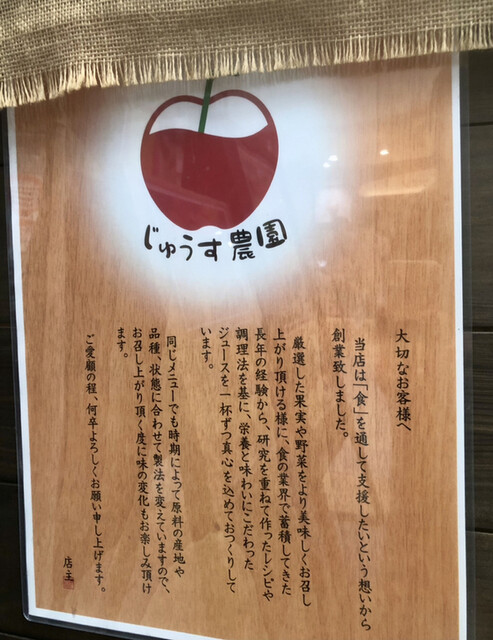 じゅうす農園
大切なお客様へ
当店は「食」を通して支援したいという想いから
創業致しました。
厳選した果実や野菜をより美味しくお召し
上がり頂ける様に、食の業界で蓄積してきた
長年の経験から、研究を重ねて作ったレシピや
調理法を基に、栄養と味わいにこだわった
ジュースを一杯ずつ真心を込めておつくりして
います。
同じメニューでも時期によって原料の産地や
品種、状態に合わせて製法を変えていますので、
お召し上がり頂く度に味の変化もお楽しみ頂け
ます。
ご愛顧の程、何卒よろしくお願い申し上げます。
店主